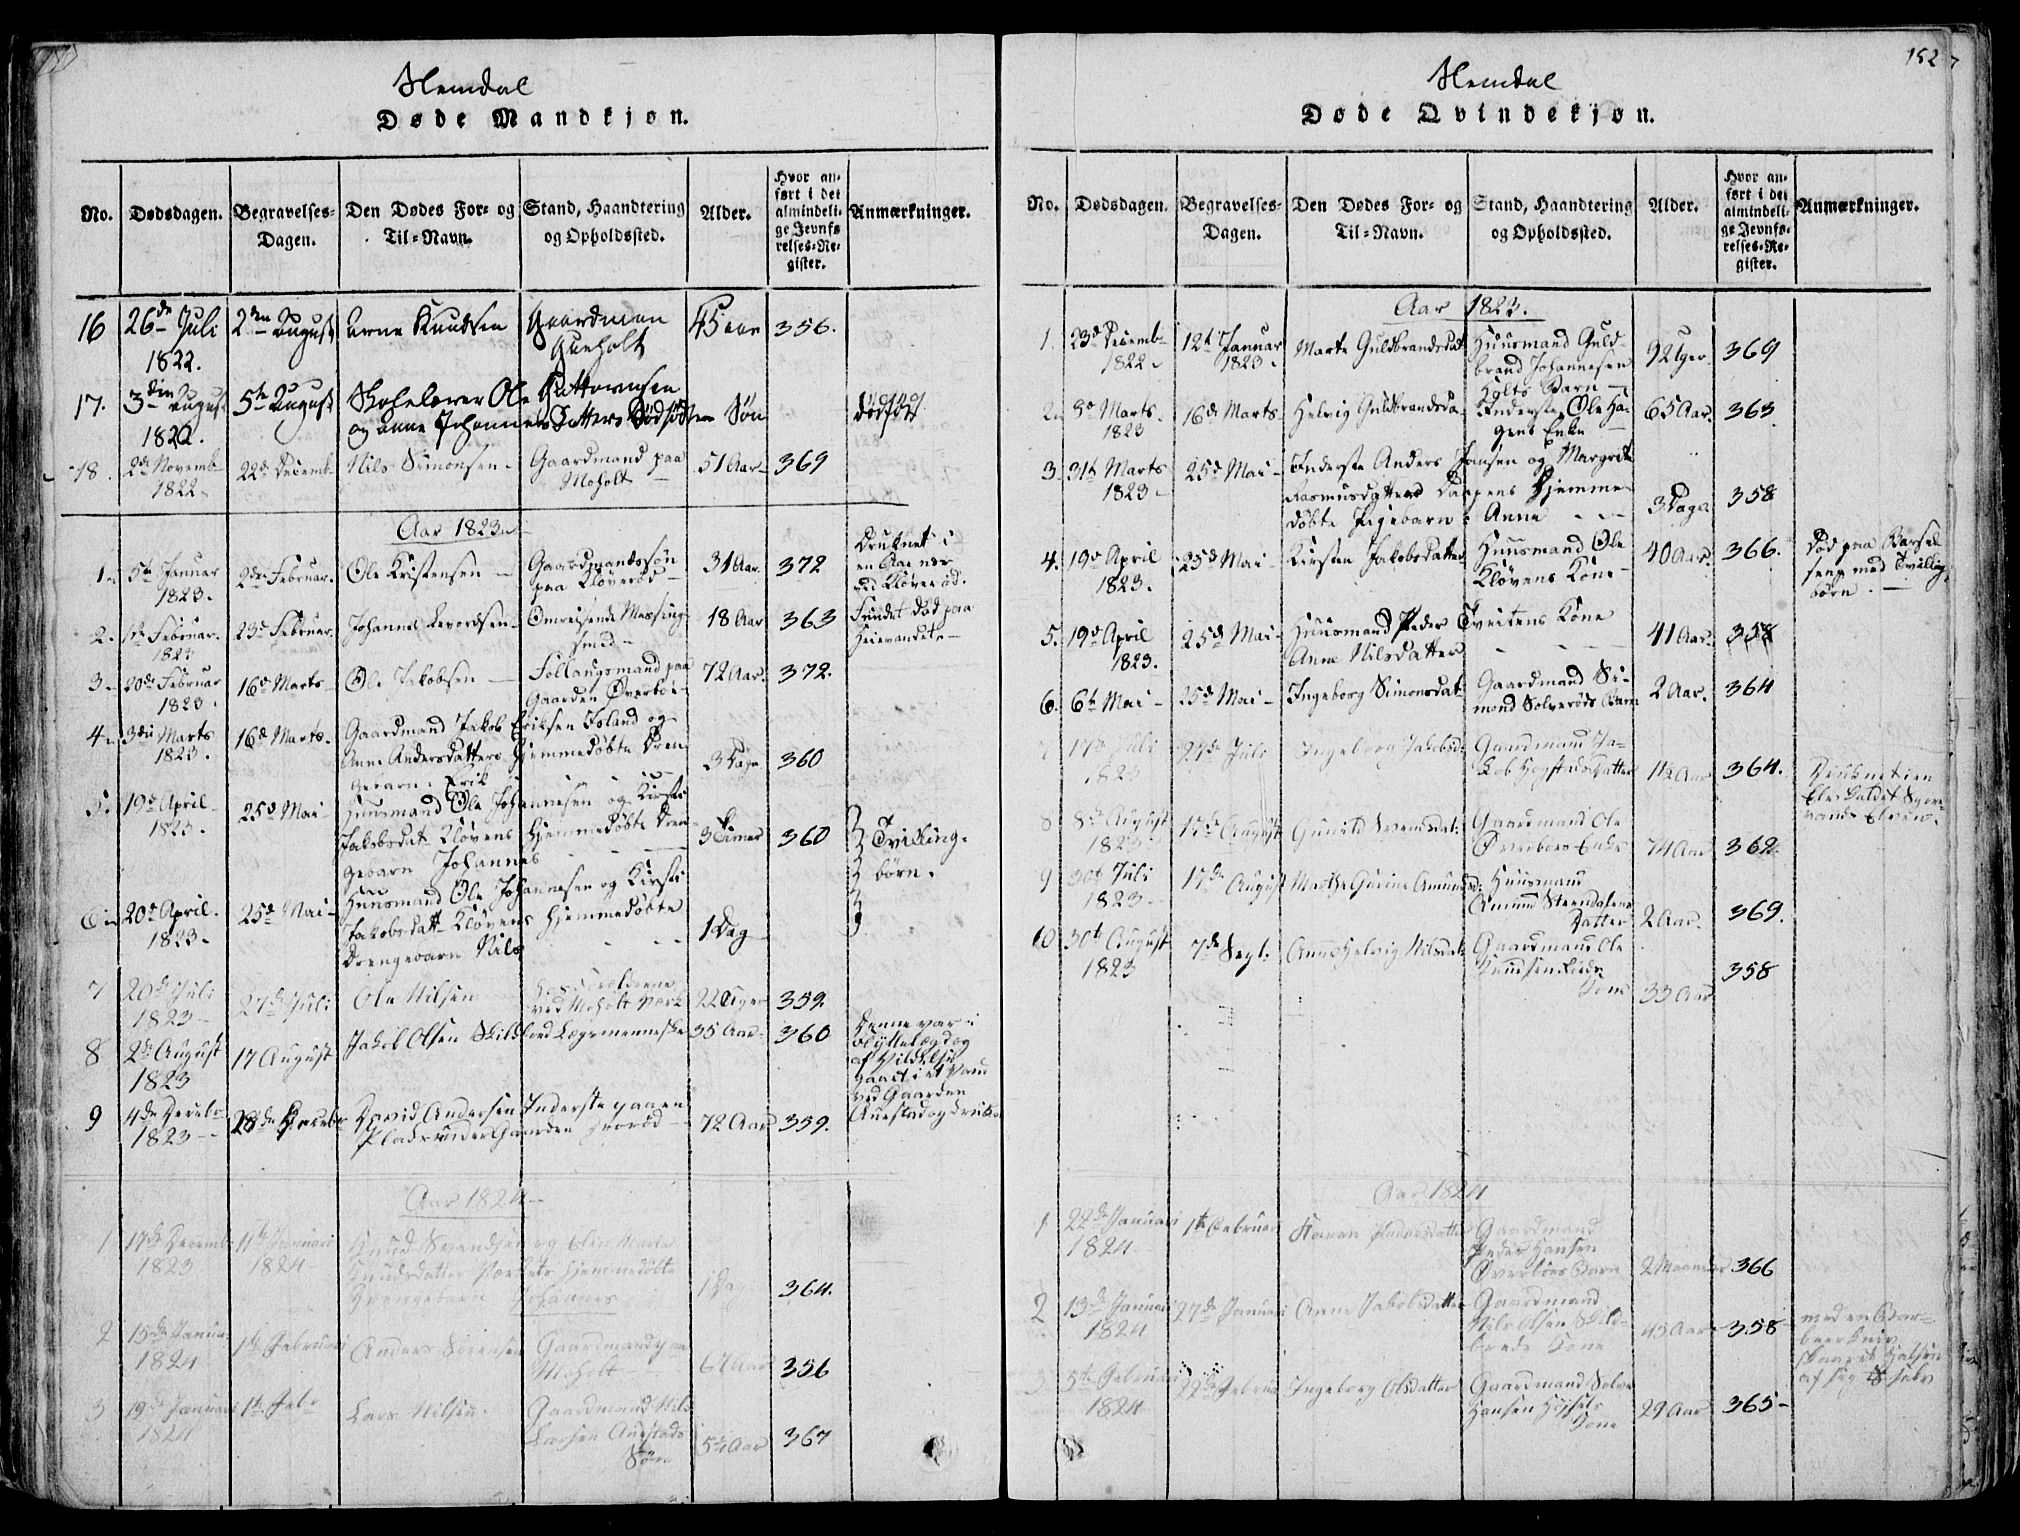 Slemdal
Døde Mandkjøn.
No. Dødsdagen. Begravelses-Dagen. Den Dødes For- og Til-Navn. Stand, Haandtering og Opholdssted. Alder. Hvor anført i det almindelige Jevnførelses-Register. Anmærkninger.
16 26de Juli 1822. 2den August Arne Knudsen Gaardman Gunholt 45 aar 356.
17. 3die August 1822. 5te August Skolelærer Ole Guttormsen
og Anne Johannes Datters Dødfødte Søn dødfød
18. 2de Novemb. 1822. 22de Decemb. Nils Simonsen. Gaardmand paa Moholt 51 Aar 369
Aar 1823.
1. 5te Januar 1823. 2den Februar. Ole Kristensen Gaardmandssøn paa Kløverød 31 Aar. 372 Druknet i en Aae nær ved Kløverød.
2. 1ste Februar. 1823 23de Februar. Johannes Levordsen Omreisende Messingsmed 18 Aar 363 Fundet død paa Heievandet.
3. 20de Februar 1823. 16de Marts Ole Jakobsen Follaugsmand paa Gaarden Øverbøe 72 Aar. 372.
4. 3die Marts 1823. 16de Marts. Gaardmand Jakob Eriksen Island og
Anne Andersdatters hjemmedøbte Dren-
gebarn: Erik 3 Dage 360
5. 19de April 1823. 25de Mai Huusmand Ole Johannesen og Kirsti
Jakobsdat. Kløvens hjemmedøbte Dren-
gebarn Johannes 3 Timer 360 Tvilling-
børn.
6. 20de April. 1823. 25de Mai Huusmand Ole Johannesen og Kirsti
Jakobsdatt. Kløvens hjemmedøbte
Drengebarn Nils 1 Dag
7 20de Juli 1823 27de Juli Ole Nilsen ved Moholt Værk 22 Uger 359.
8 2de August 1823 17 August Jakob Olsen Skilbred Lægsmenneske 35 Aar. 360 Denne var i
af Vildelse
gaaet i et Vand
ved Gaarden
Auestad og druk
9 4de Decebr. 1823 28de Decebr. David Andersen Inderste paa en
Plads under Gaarden 72 Aar 359.
Aar 1824
1 17de Decemb. 1823 11te Januari 1824 Knud Svendsen og Elen Marie
Knudsdatter Værkets hjemmedøbte
Drengebarn Johannes 1 Dag 364.
2 15de Januar 1824 1ste Februari Anders Sørensen Gaardmand paa Moholt 67 Aar 356
3 19de Januari 1824 1te Feb. Lars Nilsen Gaardmand Nils Larsen Auestads Søn 5½ Aar 367
152
Slemdal
Døde Qvindekjøn.
No. Dødsdagen. Begravelses-Dagen. Den Dødes For- og Til-Navn. Stand, Haandtering og Opholdssted. Alder. Hvor anført i det almindelige Jevnførelses-Register. Anmærkninger.
Aar 1823.
1. 23de Decemb. 1822. 12te Januar 1823. Marte Guldbrandsdat. Huusmand Guldbrand Johannesen Holts Barn 9 Uger. 369
2. 8de Marts. 1823 16de Marts Helvig Guldbrandsda. Inderste Ole Hagens Enke 65 Aar. 363.
3. 31te Marts 1823 25de Mai Inderste Anders Jansen og Margrete
Rasmusdatters hjemme-
døbte Pigebarn: Anne 3 Dage 358
4. 19de April 1823. 25de Mai Kirsten Jakobsdatter Huusmand Ole Kløvens Kone 40 Aar. 366. Død paa Barselseng med Tvillingbørn.
5. 19de April 1823. 25de Mai Huusmand Peder Tveitens Kone
Anne Nilsdatter 41 Aar. 358
6. 6te Mai 25de Mai Ingeborg Simonsdat. Gaardmand Simond Solverøds Barn 2 Aar. 364
7 17de Juli 1823 27de Juli Ingeborg Jakobsd: Gaardmand Jakob Hogstads Datter 1½ Aar 364. Druknet i en Elv kaldet
8 8de August 1823 17de August Gunild Svensdat: Gaardmand Ole Øverboes Enke 74 Aar 362
9 30te Juli 1823 17de August Marthe Gurine Amundsd: Huusmand Amund Steendalens Datter 2 Aar. 369.
10 30te August 1823 7de Sept: Anne Helvig Nilsdat: Gaardmand Ole Knudsen Kone 33 Aar 358
Aar 1824
1 22de Januari 1824 1te Februar Karen Pedersdatter Gaardmand Peder Hansen Øverbøes Barn 2 Maaneder 366
2 13de Januari 1824 27de Januari Anne Jakobsdatter Gaardmand Nils Olsen Skilbreds Kone 45 Aar 358 med en Barbeerkniv skaaret Halsen af sig selv
3 5te Februari 1824 22de Februar Ingeborg Olsdatter Gaardmand Hansen Kone 29 Aar 365